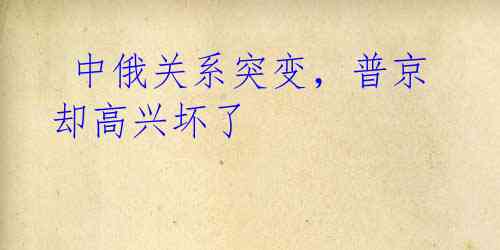 中俄关系突变，普京
却高兴坏了